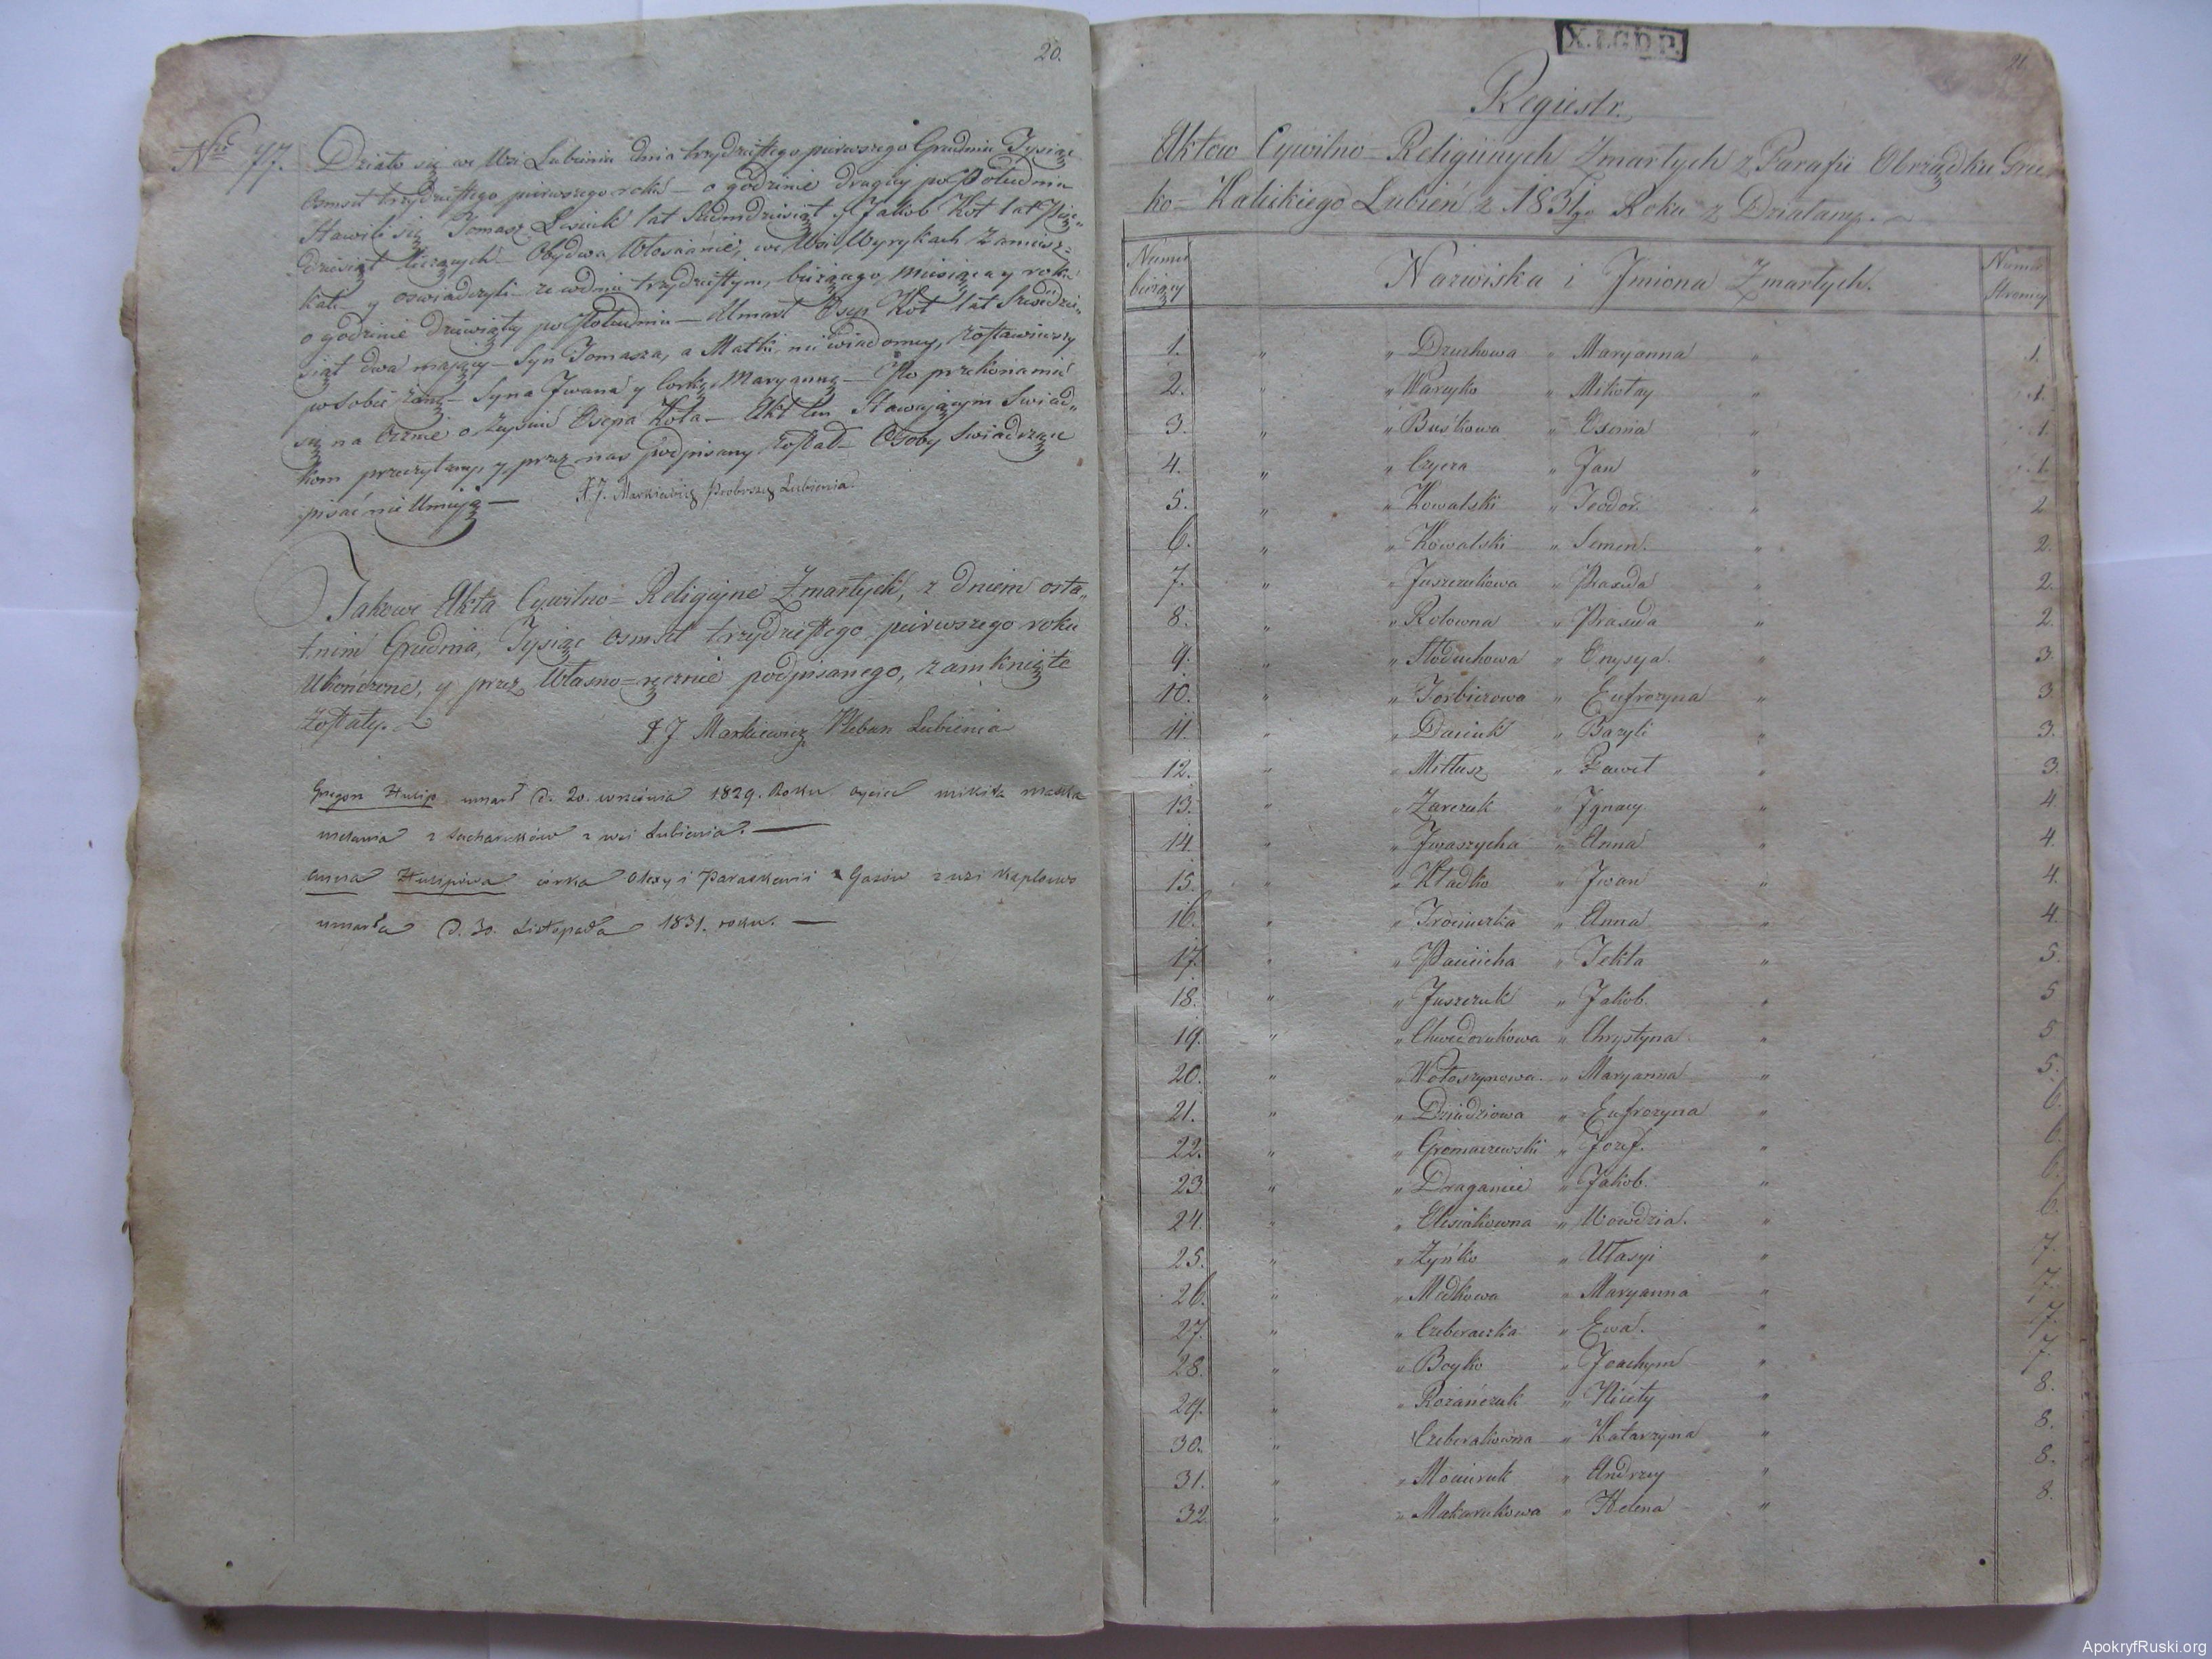 20.
Nro 77. Działo się we Wsi Lubieniu dnia trzydziestego pierwszego Grudnia Tysiąc
osmset trzydziestego pierwszego roku — o godzinie drugiey po Południu
Stawili się Tomasz Lesiuk lat siedmdziesiąt y Jakob Kot lat pięć„
dziesiąt liczących — Obydwa Włoscianie, we Wsi Wyrykach zamiesz=
kali y oswiadczyli — że w dniu trzydziestym, bieżącego Miesiąca y roku
o godzinie dziewiątey po Południu — Umarł Osyp Kot lat szescdzie„
siąt dwa mający — Syn Tomasza, a Matki nie wiadomey, zostawiwszy
po sobie żonę — Syna Jwana y Corkę Maryannę — Po przekonaniu
się na Ocznie o zeysciu Osypa Kota — Akt ten Stawającym Swiad„
kom przeczytany, y przez nas podpisany został — Osoby Swiadczące
pisać nie Umieją —
X J. Markiewicz Proboszcz Lubienia.
Takowe Akta Cywilno= Religijne Zmarłych, z dniem osta„
tnim Grudnia, Tysiąc osmset trzydziestego pierwszego roku
Ukończone, y przez Własno=ręcznie podpisanego, zamknięte
zostały.
X J Markiewicz Pleban Lubienia
Gregor Hulip umarł d. 20. września 1829. Roku oyciec mikita matka
melania z Sacharuków z wsi Lubienia. —
anna Hulipowa córka Olexy i Paraskewii Gazów z wsi Kaplonos
umarła d. 30. Listopada 1831. roku. —
X.L.G.D.P.
21.
Regiestr.
Aktow Cywilno= Religiinych Zmarłych z Parafii Obrządku Grec
ko= Katlickiego Lubień z 1831go Roku z Działamy.
Numer bieżący
Nazwiska i Jmiona Zmarłych.
Numer Stronicy
1. „ „ Dzuchowa „ Maryanna „ 1.
2. „ „ Warcyko „ Mikołay „ 1.
3. „ „ Buśkowa „ Exenia „ 1.
4. „ „ Czyera „ Jan „ 1.
5. „ „ Kowalski „ Teodor. „ 2
6. „ „ Kowalski „ Semen. „ 2.
7. „ „ Juszczukowa „ Praxeda „ 2.
8. „ „ Rolowna „ Praxeda „ 2.
9. „ „ Stoduchowa „ Onysya. „ 3.
10. „ „ Torbiczowa „ Eufrozyna „ 3
11. „ „ Daciuk „ Bazyli „ 3.
12. „ „ Mittusz „ Paweł „ 3.
13. „ „ Zarczuk „ Jgnacy „ 4
14. „ „ Jwaszycha „ Anna „ 4.
15. „ „ Kładko „ Jwan „ 4.
16. „ „ Trociuczka „ Anna „ 4.
17. „ „ Paciicha „ Tekla „ 5.
18. „ „ Juszczuk „ Jakob. „ 5
19. „ „ Chwedorukowa „ Chrystyna „ 5
20. „ „ Wołoszynowa. „ Maryanna „ 5.
21. „ „ Dziadziowa „ Eufrozyna „ 6.
22. „ „ Gromaczewski „ Jozef. „ 6.
23. „ „ Draganiec „ Jakob. „ 6.
24. „ „ Olisiakowna „ Uowdzia. „ 6.
25. „ „ Łyńko „ Ułasyi „ 7.
26. „ „ Miedkowa „ Maryanna „ 7.
27. „ „ Czeberaczka „ Ewa. „ 7.
28. „ „ Boyko „ Joachym „ 7.
29. „ „ Rożańczuk „ Nicety „ 8.
30. „ Czeberakowna „ Katarzyna „ 8.
31. „ „ Mociruk „ Andrzey „ 8.
32 „ „ Makarukowa „ Helena „ 8.
ApokryfRuski.org